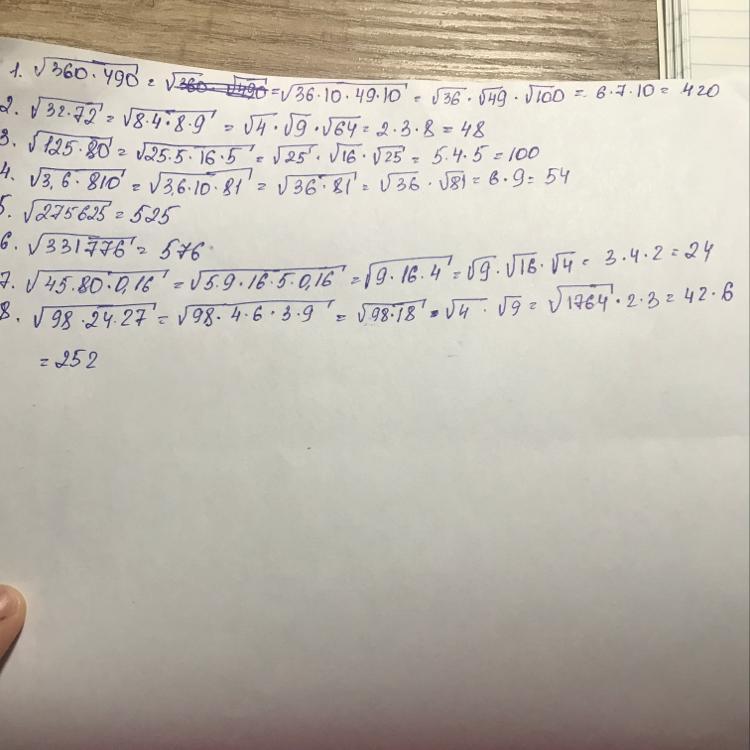 1. √360·490 = √360 · √490 = √36·10·49·10 = √36 · √49 · √100 = 6·7·10 = 420
2. √32·72 = √8·4·8·9 = √4 · √9 · √64 = 2·3·8 = 48
3. √125·80 = √25·5·16·5 = √25 · √16 · √25 = 5·4·5 = 100
4. √3,6·810 = √3,6·10·81 = √36·81 = √36 · √81 = 6·9 = 54
5. √275625 = 525
6. √331776 = 576
7. √45·80·0,16 = √5·9·16·5·0,16 = √9·16·4 = √9·√16·√4 = 3·4·2 = 24
8. √98·24·27 = √98·4·6·3·9 = √98·18 · √4 · √9 = √1764 · 2·3 = 42·6
= 252